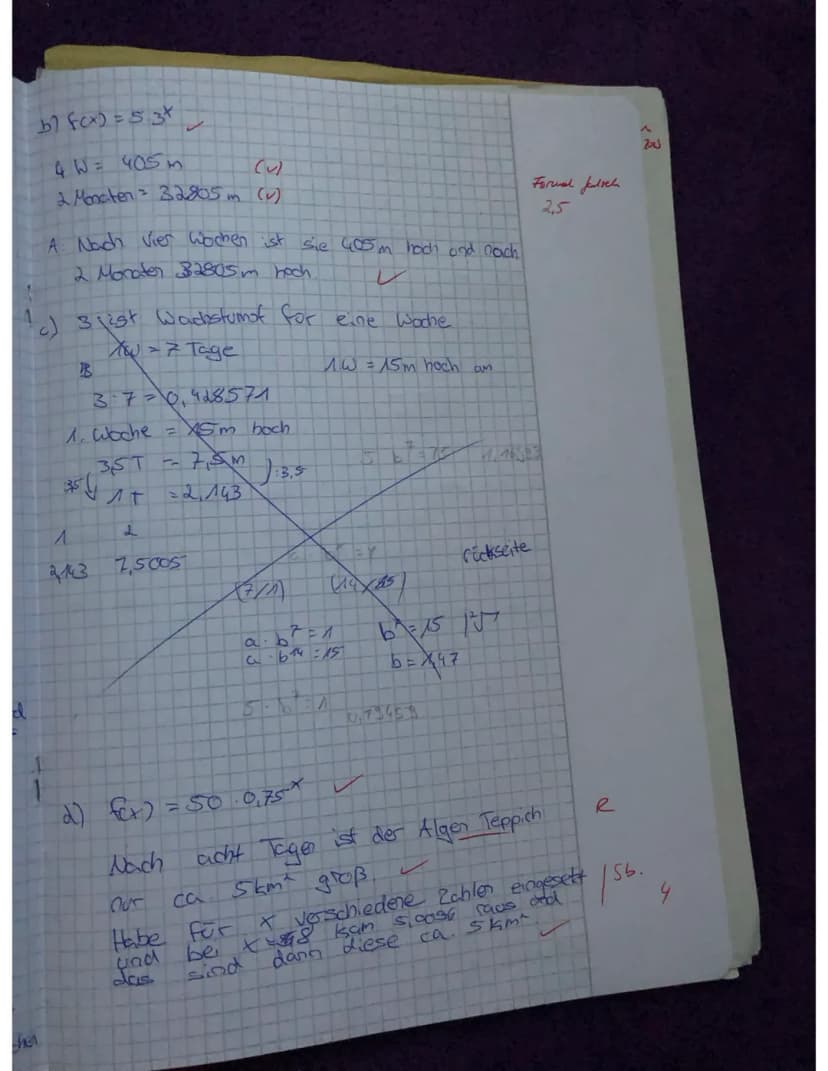 b) f(x) = 5 3^x ✓
4 W = 405 m (✓)
2 Monaten = 32805 m (✓)
Formel falsch
2,5
A: Nach vier Wochen ist sie 405 m hoch und nach
2 Monaten 32805 m hoch. ✓
c) 3 ist Wachstumsf für eine Woche
1W = 7 Tage
1W = 15m hoch an
3:7 = 0,428571
1. Woche = 15m hoch
3,5T = 7,5m
):3,5
3,5 ↓ 1T = 2,143
5 b^7 = 15
1 2
2,143 7,5005
rückseite
(7/1) (14/15)
a · b^7 = 1 b^7 = 15
a · b^14 = 15 b = 1,47
5 · b^7 = 1
0,79459
d) f(x) = 50 · 0,75^x ✓
Nach acht Tagen ist der Algen Teppich
R
nur ca 5km² groß. ✓
Habe für x verschiedene Zahlen eingesetzt
Sb.
4
und bei x=8 kam 5,0056 raus und
das sind dann diese ca. 5km². ✓